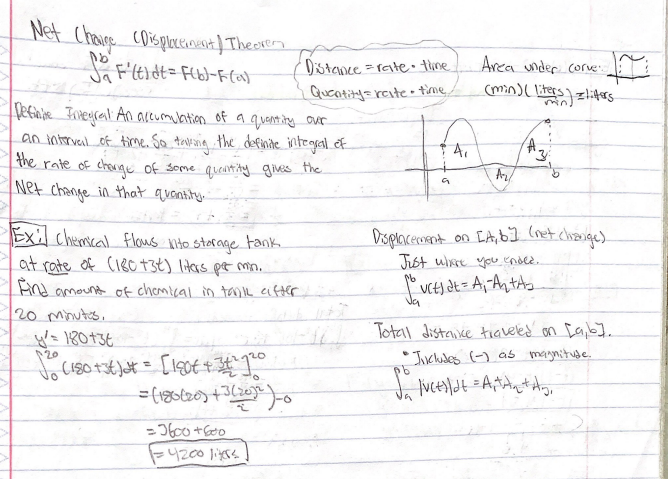 Net Change (Displacement) Theorem
∫ₐᵇ F'(t)dt = F(b)-F(a)
Distance = rate · time
Quantity = rate · time
Area under curve:
(min)(liters/min) = liters
Definite Integral: An accumulation of a quantity over
an interval of time. So taking the definite integral of
the rate of change of some quantity gives the
Net change in that quantity.
A₁
A₂
A₃
a
b
Ex: Chemical flows into storage tank
at rate of (180+3t) liters per min.
Find amount of chemical in tank after
20 minutes.
y' = 180+3t
∫₀²⁰ (180+3t)dt = [180t + 3t²/2]₀²⁰
= (180(20) + 3(20)²/2) - 0
= 3600 + 600
= 4200 liters
Displacement on [a,b] (net change)
Just where you ended.
∫ₐᵇ v(t)dt = A₁-A₂+A₃
Total distance traveled on [a,b].
• Includes (-) as magnitude.
∫ₐᵇ |v(t)|dt = A₁+A₂+A₃.